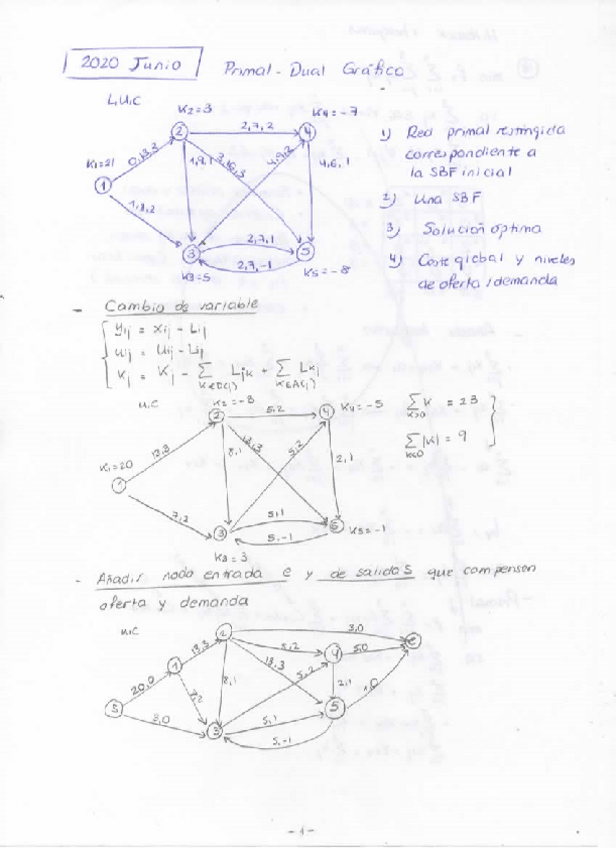 2020 Junio
Primal - Dual Gráfico
L,U,C
K2=3
K4=-7
K1=21
0,13,3
2,7,2
1,9,1
4,9,2
4,6,1
1,8,2
2,7,1
2,7,-1
K3=5
K5=-8
1) Red primal restingida
correspondiente a
la SBF inicial
2) Una SBF
3) Solución óptima
4) Coste global y niveles
de oferta/demanda
- Cambio de variable
Yij = Xij - Lij
Uij = Uij - Lij
U,C
K2=-8
5,2
K4=-5
Σ K = 23
K>0
Σ |K| = 9
K<0
K1=20
13,3
8,1
13,3
5,2
2,1
7,2
5,1
5,-1
K5=-1
K3=3
- Añadir nodo entrada e y de salida S que compensen
oferta y demanda
U,C
3,0
13,3
5,2
5,0
20,0
13,3
5,2
8,1
2,1
1,0
3,0
5,1
5,-1
-1-